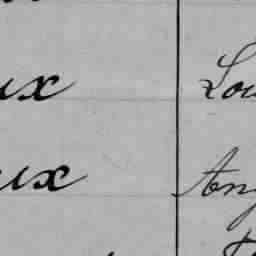 ux Lou
ux Ang